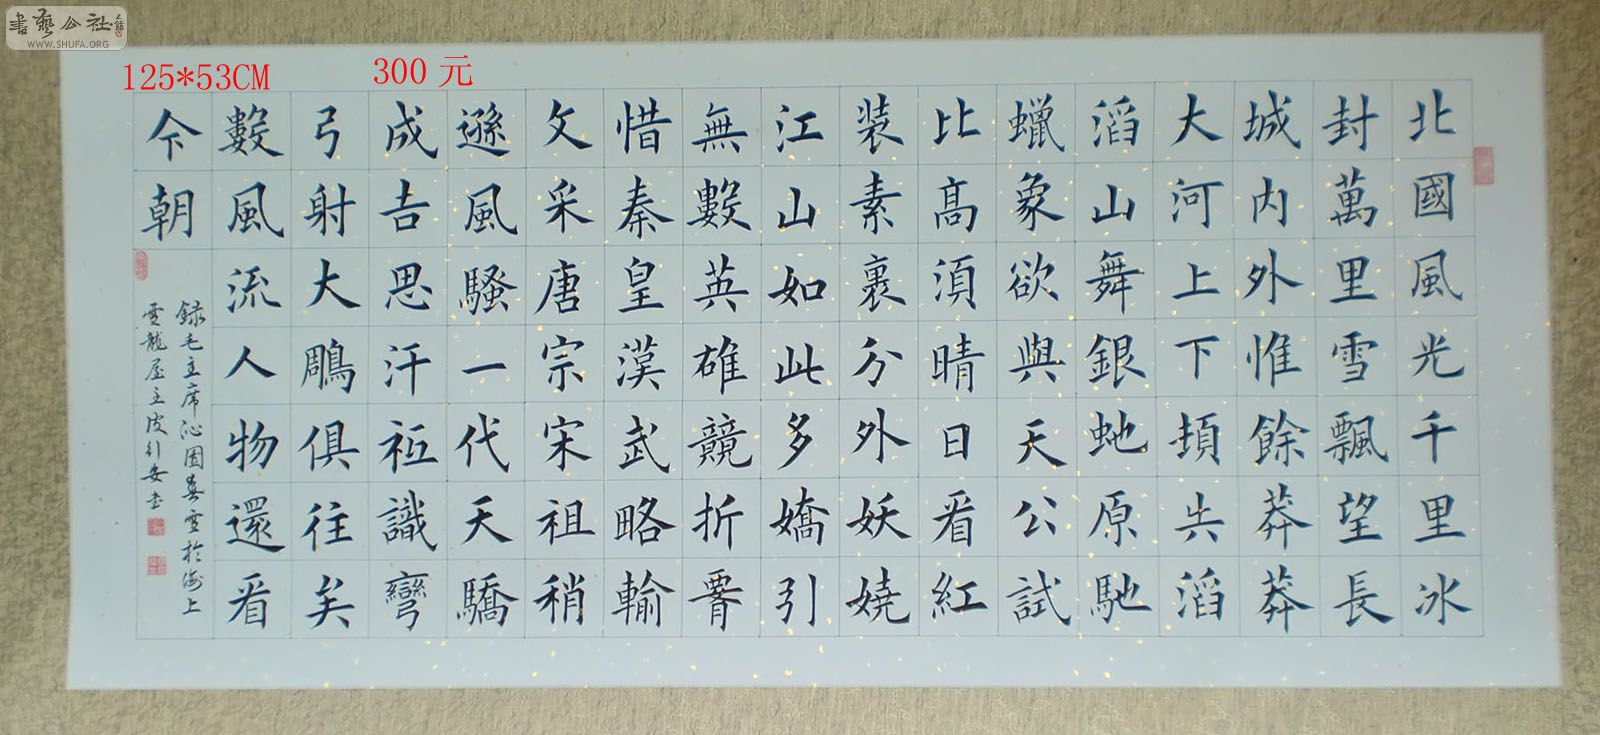 書藝公社
WWW.SHUFA.ORG
125*53CM
300 元
北國風光千里冰
封萬里雪飄望長
城内外惟餘莽莽
大河上下頓失滔
滔山舞銀虵原馳
蠟象欲與天公試
比高須晴日看紅
装素裹分外妖嬈
江山如此多嬌引
無數英雄競折腰
惜秦皇漢武略輸
文采唐宗宋祖稍
遜風騷一代天驕
成吉思汗祗識彎
弓射大鵰俱往矣
數風流人物還看
今朝
録毛主席沁園春雪於海上
龍屋主皮引安書